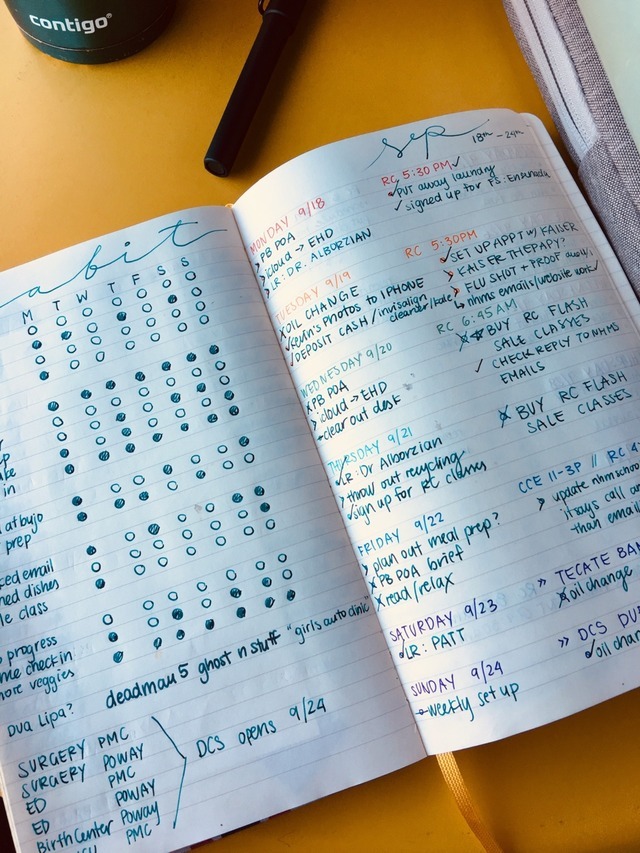 contigo
abit
M T W T F S S
p
in
at bujo
prep
ked email
ned dishes
le class
progress
me check in
more veggies
Dua Lipa?
deadmau5 ghost n stuff "girls auto clinic"
SURGERY PMC
SURGERY POWAY
ED PMC
ED POWAY
Birth Center Poway
PMC
DCS opens 9/24
sep 18th - 24th
MONDAY 9/18
PB POA
icloud → EHD
LR: DR. ALBORZIAN
RC 5:30 PM
PUT away laundry
signed up for PS: Ensenada
TUESDAY 9/19
OIL CHANGE
Kevin's PHOTOS to IPHONE
DEPOSIT CASH / invisalign cleanser/babe
RC 5:30PM
SET UP APPT w/ KAISER
KAISER THERAPY?
FLU SHOT + PROOF
nhms emails/website work
WEDNESDAY 9/20
PB POA
icloud → EHD
clear out desk
RC 6:45AM
BUY RC FLASH
SALE CLASSES
CHECK REPLY TO NHMS
EMAILS
THURSDAY 9/21
LR: Dr Alborzian
throw out recycling
sign up for RC classes
BUY RC FLASH
SALE CLASSES
FRIDAY 9/22
plan out meal prep?
PB POA brief
read/relax
CCE 11-3P // RC
update nhm
it says call
than email
SATURDAY 9/23
LR: PATT
» TECATE
oil change
SUNDAY 9/24
weekly set up
» DCS
oil